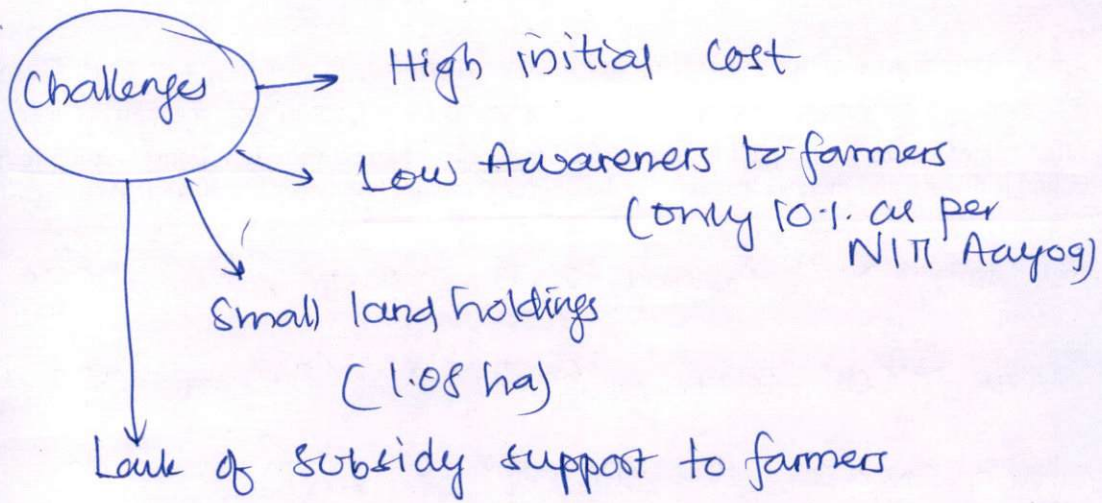 Challenges → High initial cost
Low Awareness to farmers
(only 10% as per
NITI Aayog)
Small land holdings
(1.08 ha)
Lack of subsidy support to farmers